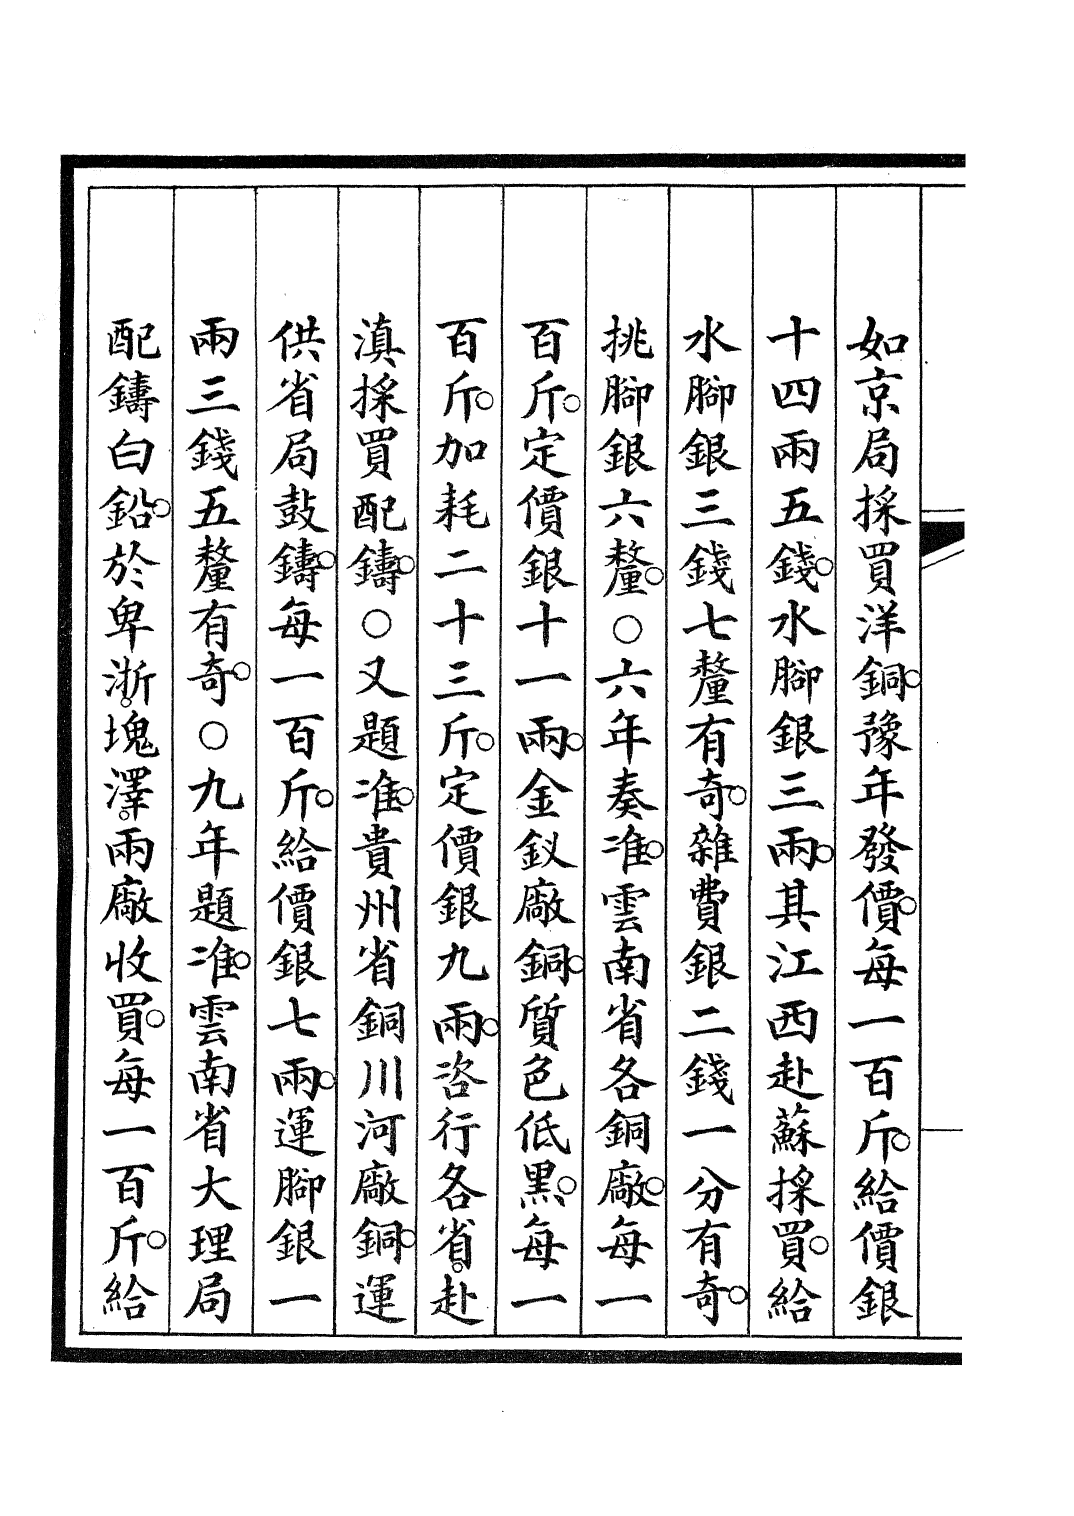 如京局採買洋銅。豫年發價。每一百斤。給價銀
十四兩五錢。水腳銀三兩。其江西赴蘇採買。給
水腳銀三錢七釐有奇。雜費銀二錢一分有奇。
挑腳銀六釐。○六年奏准。雲南省各銅廠。每一
百斤。定價銀十一兩。金釵廠銅。質色低黑。每一
百斤。加耗二十三斤。定價銀九兩。咨行各省。赴
滇採買配鑄。○又題准。貴州省銅川河廠銅。運
供省局鼓鑄。每一百斤。給價銀七兩。運腳銀一
兩三錢五釐有奇。○九年題准。雲南省大理局
配鑄白鉛。於卑浙。塊澤。兩廠收買。每一百斤。給